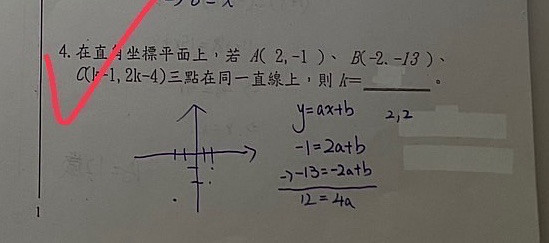 4. 在直角坐標平面上，若 A( 2, -1 )、 B(-2, -13 )、
C(k-1, 2k-4)三點在同一直線上，則 k=________。
y=ax+b
2,2
-1=2a+b
-) -13=-2a+b
12=4a
1